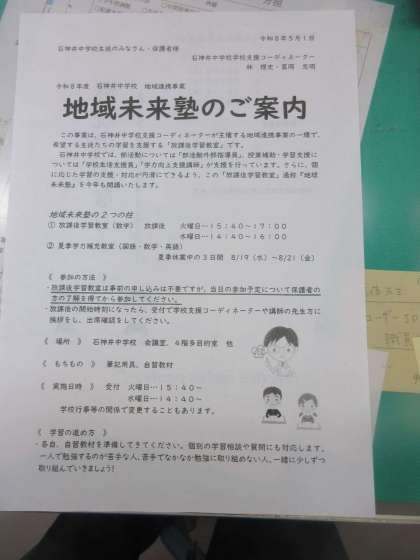 令和8年5月1日
石神井中学校生徒のみなさん・保護者様
石神井中学校学校支援コーディネーター
令和8年度 石神井中学校 地域連携事業
地域未来塾のご案内
この事業は、石神井中学校支援コーディネーターが主催する地域連携事業の一環で、
希望する生徒たちの学習を支援する「放課後学習教室」です。
石神井中学校では、部活動については「部活動外部指導員」、授業補助・学習支援に
ついては「学校生活支援員」「学力向上支援講師」が支援を行っています。さらに、個
に応じた学習の支援・対応が円滑にできるよう、この「放課後学習教室」通称『地域
未来塾』を今年も開講いたします。
地域未来塾の2つの柱
① 放課後学習教室(数学) 放課後 火曜日―15:40~17:00
水曜日―14:40~16:00
② 夏季学力補充教室(国語・数学・英語)
夏季休業中の3日間 8/19(水)~8/21(金)
《 参加の方法 》
・放課後学習教室は事前の申し込みは不要ですが、当日の参加予定について保護者の
方の了解を得てから参加してください。
・放課後の開始時刻になったら、受付で学校支援コーディネーターや講師の先生方に
挨拶をし、出席確認をしてください。
《 場所 》 石神井中学校 会議室、4階多目的室 他
《 もちもの 》 筆記用具、自習教材
《 実施日時 》 受付 火曜日―15:40~
水曜日―14:40~
学校行事等の関係で変更することもあります。
《 学習の進め方 》
・各自、自習教材を準備してきてください。個別の学習相談や質問にも対応します。
一人で勉強するのが苦手な人、苦手でなかなか勉強に取り組めない人、一緒に少しずつ
取り組んでいきましょう!